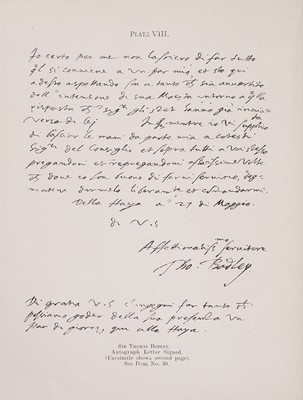 PLATE VIII.
Io certo per me non lasciero di far tutto
ql si conviene a un par mio, et sto qui
adesso aspettando fin a tanto ch sia avvertito
dell' intentione di sua Maestà intorno a qlla
risposta ch Sigri gli Stati hanno già
verso de lej mentre io vi supplico
di basciar le mani da parte mia a cotesti
Sigri del Consiglio et sopra tutti a
pregandovi et ripregandovi
ch dove io son buono di farvi servitio, vog-
darmelo liberamte et comandarmi.
Della Haya a' 27 di Maggio.
di V.S
Affettionatiss. servitore
Tho. Bodley
Di gratia V.S s'ingegni far tanto ch
possiamo goder della sua presenza un
par di giorni, qui alla Haya.
SIR THOMAS BODLEY.
Autograph Letter Signed.
(Facsimile shows second page).
See Item No. 38.